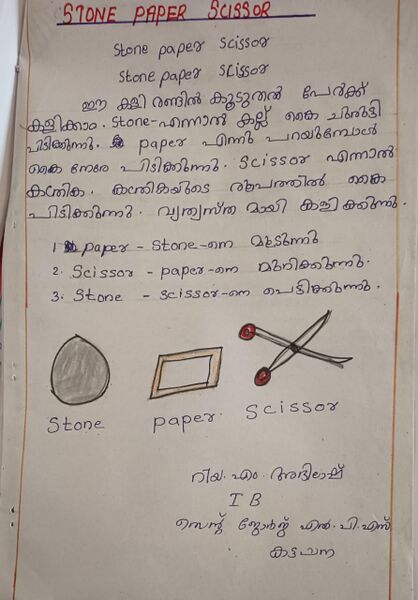 STONE PAPER SCISSOR
Stone paper Scissor
Stone paper Scissor
ഈ കളി രണ്ടിൽ കൂടുതൽ പേർക്ക്
കളിക്കാം. Stone-എന്നാൽ കല്ല് കൈ ചുരുട്ടി
പിടിക്കുന്നു. paper എന്നു പറയുമ്പോൾ
കൈ നേരേ പിടിക്കുന്നു. Scissor എന്നാൽ
കത്രിക. കത്രികയുടെ രൂപത്തിൽ കൈ
പിടിക്കുന്നു. വ്യത്യസ്ത മായി കളിക്കുന്നു.
1. paper - Stone-നെ മൂടുന്നു
2. Scissor - paper-നെ മുറിക്കുന്നു.
3. Stone - scissor-നെ പൊട്ടിക്കുന്നു.
Stone paper Scissor
റിയ. എം. അഭിലാഷ്
I B
സെന്റ് ജോർജ്ജ് എൽ.പി.എസ്
കട്ടചന